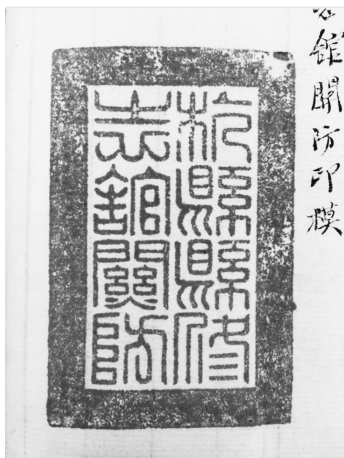 館關防印模
杭縣縣修
志館關防